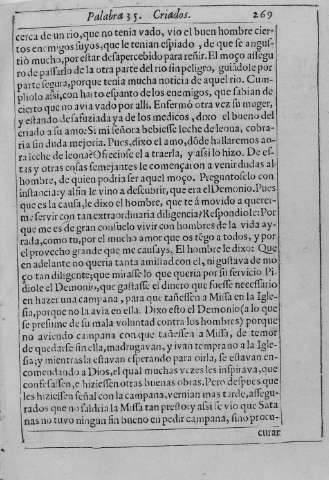 Palabra 35. Criados. 269
cerca de un rio, que no tenia vado, vio el buen hombre cier-
tos enemigos suyos, que le tenian espiado, de que se angus-
tiò mucho, por estar desapercebido para reñir. El moço assegu
ro de passarlo de la otra parte del rio sin peligro, guiãdole por
parte segura, porque tenia mucha noticia de aquel rio. Cum-
pliolo assi, con harto espanto de los enemigos, que sabian de
cierto que no avia vado por alli. Enfermó otra vez su muger,
y estando desafuziada ya de los medicos, dixo el bueno del
criado a su amo: Si mi señora bebiesse leche de leona, cobra-
ria sin duda mejoria. Pues, dixo el amo, dõde hallaremos ao-
ra leche de leona? Ofreciose el a traerla, y assi lo hizo. De es-
tas y otras cosas semejantes le començaron a venir dudas al
hombre, de quien podria ser aquel moço. Preguntoselo con
instancia: y al fin le vino a descubrir, que era el Demonio. Pues
que es la causa, le dixo el hombre, que te á movido a querer-
me servir con tan extraordinaria diligencia? Respondiole: Por
que me es de gran consuelo vivir con hombres de la vida ay-
rada, como tu, por el mucho amor que os tẽgo a todos, y por
el provecho grande que me causays. El hombre le dixo: Que
en adelante no queria tanta amistad con el, ni gustava de mo
ço tan diligente; que mirasse lo que queria por su servicio. Pi-
diole el Demonio, que gastasse el dinero que fuesse necessario
en hazer una campana, para que tañessen a Missa en la Igle-
sia, porque no la avia en ella. Dixo esto el Demonio (a lo que
se presume de su mala voluntad contra los hombres) porque
no aviendo campana con que tañessen a Missa, de temor
de quedarse sin ella, madrugavan, y ivan temprano a la Igle-
sia; y mientras la estavan esperando para oirla, se estavan en-
comendando a Dios, el qual muchas vezes les inspirava, que
confessassen, e hiziessen otras buenas obras. Pero despues que
les hiziessen señal con la campana, vernian mas tarde, assegu-
rados que no saldria la Missa tan presto: y assi se vio que Sata
nas no tuvo ningun fin bueno en pedir campana, sino procu-
curar